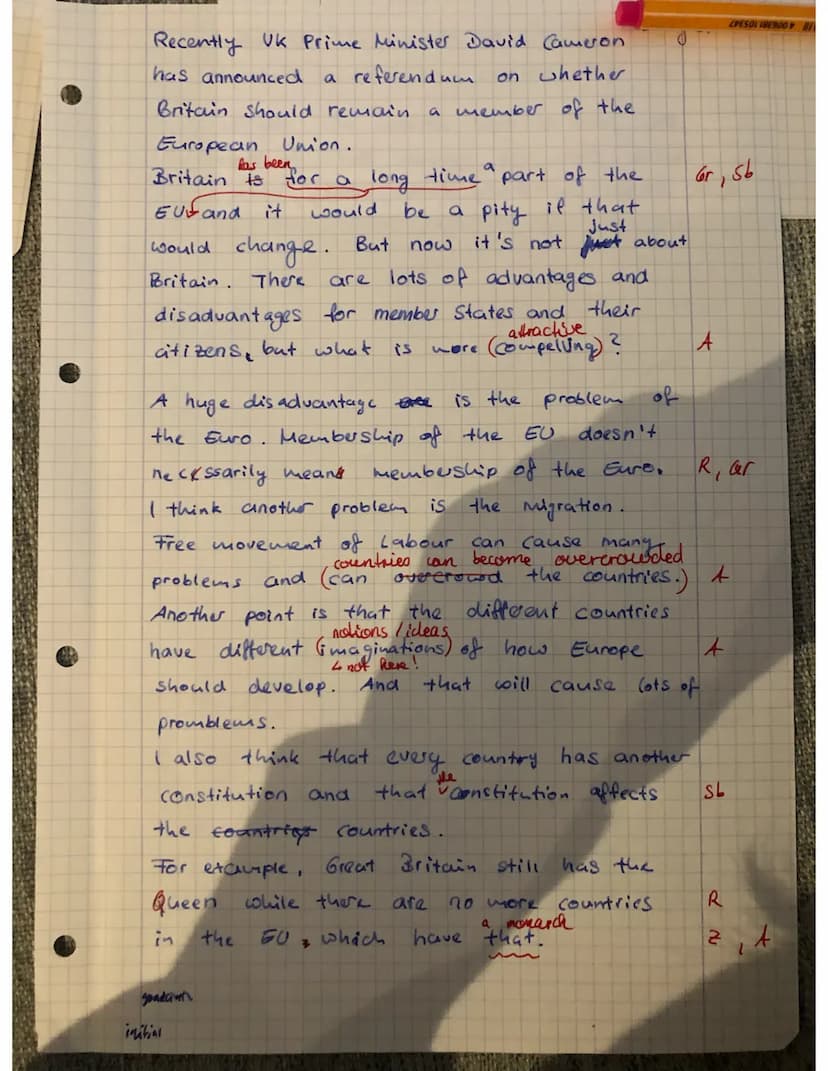 Recently UK Prime Minister David Cameron
has announced a referendum on whether
Britain should remain a member of the
European Union.
has been
Britain is for a long time a part of the Gr, Sb
EU and it would be a pity if that
just
would change. But now it's not just about
Britain. There are lots of advantages and
disadvantages for member States and their
attractive
citizens, but what is more (compelling)? A
A huge disadvantage is the problem of
the Euro. Membership of the EU doesn't
necessarily means membership of the Euro. R, Gr
I think another problem is the migration.
Free movement of Labour can cause many
countries can become overcrowded
problems and (can overcrowd the countries.) A
Another point is that the different countries
notions / ideas
have different (imaginations) of how Europe A
not here!
should develop. And that will cause lots of
promblems.
I also think that every country has another
the
constitution and that constitution affects Sb
the countries countries.
For example, Great Britain still has the
Queen while there are no more countries R
a monarch
in the EU, which have that. Z, A
initial